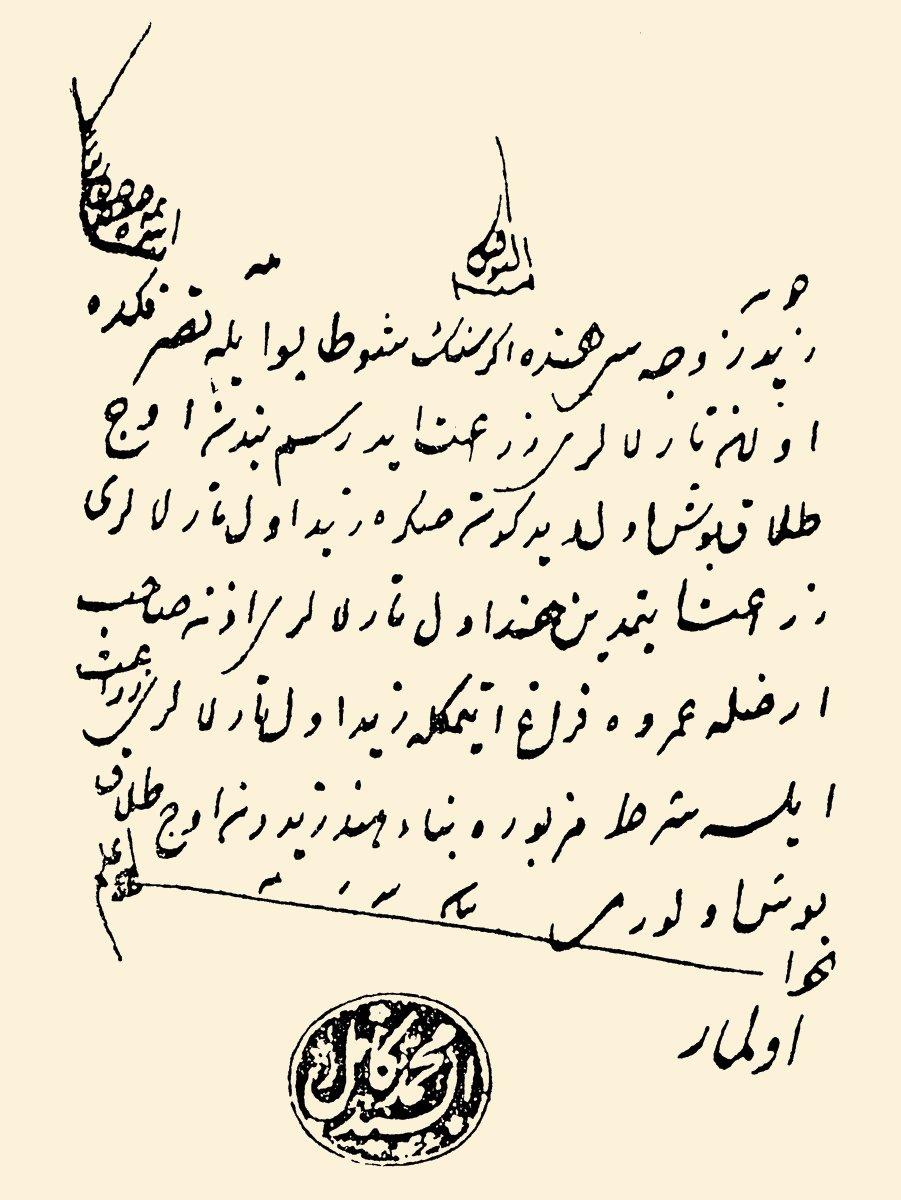 منه التوفيق
زید زوجه سی هنده اکر سنك شو طابو ایله تصرفکده
اولان تارلالری زراعت ایدرسم بندن اوچ
طلاق بوش اول دیدکدن صکره زید اول تارلالری
زراعت ایتمدین هند اول تارلالری اذن صاحب
ارضله عمروه فراغ ایتمکله زید اول تارلالری زراعت
ایلسه شرط مزبوره بناء هند زیددن اوچ طلاق
بوش اولورمی
الجواب
اولماز
محمد کامل
السيد